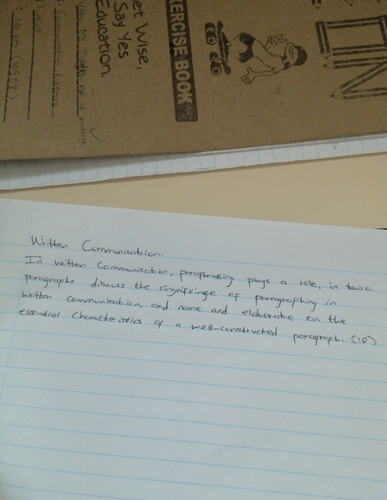 et Wise,
Say Yes
Education
EXERCISE BOOK
Written Communication.
In written communication, paraphrasing plays a role, in two
paragraphs discuss the significinge of paragraphing in
written communication, and name and elaborate on the
essential characteristics of a well-constructed paragraph. (10)